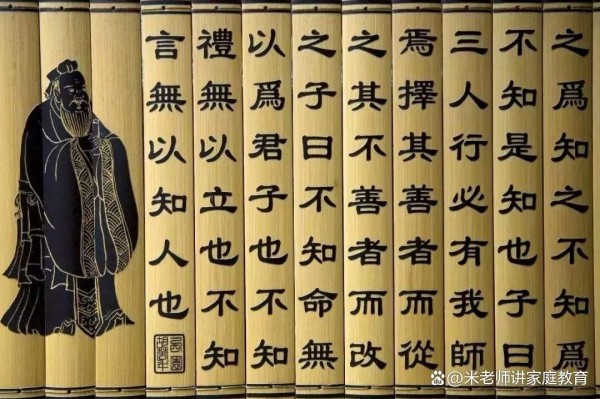 之爲知之不知爲
不知是知也子曰
三人行必有我師
焉擇其善者而從
之其不善者而改
之子曰不知命無
以爲君子也不知
禮無以立也不知
言無以知人也
@米老师讲家庭教育